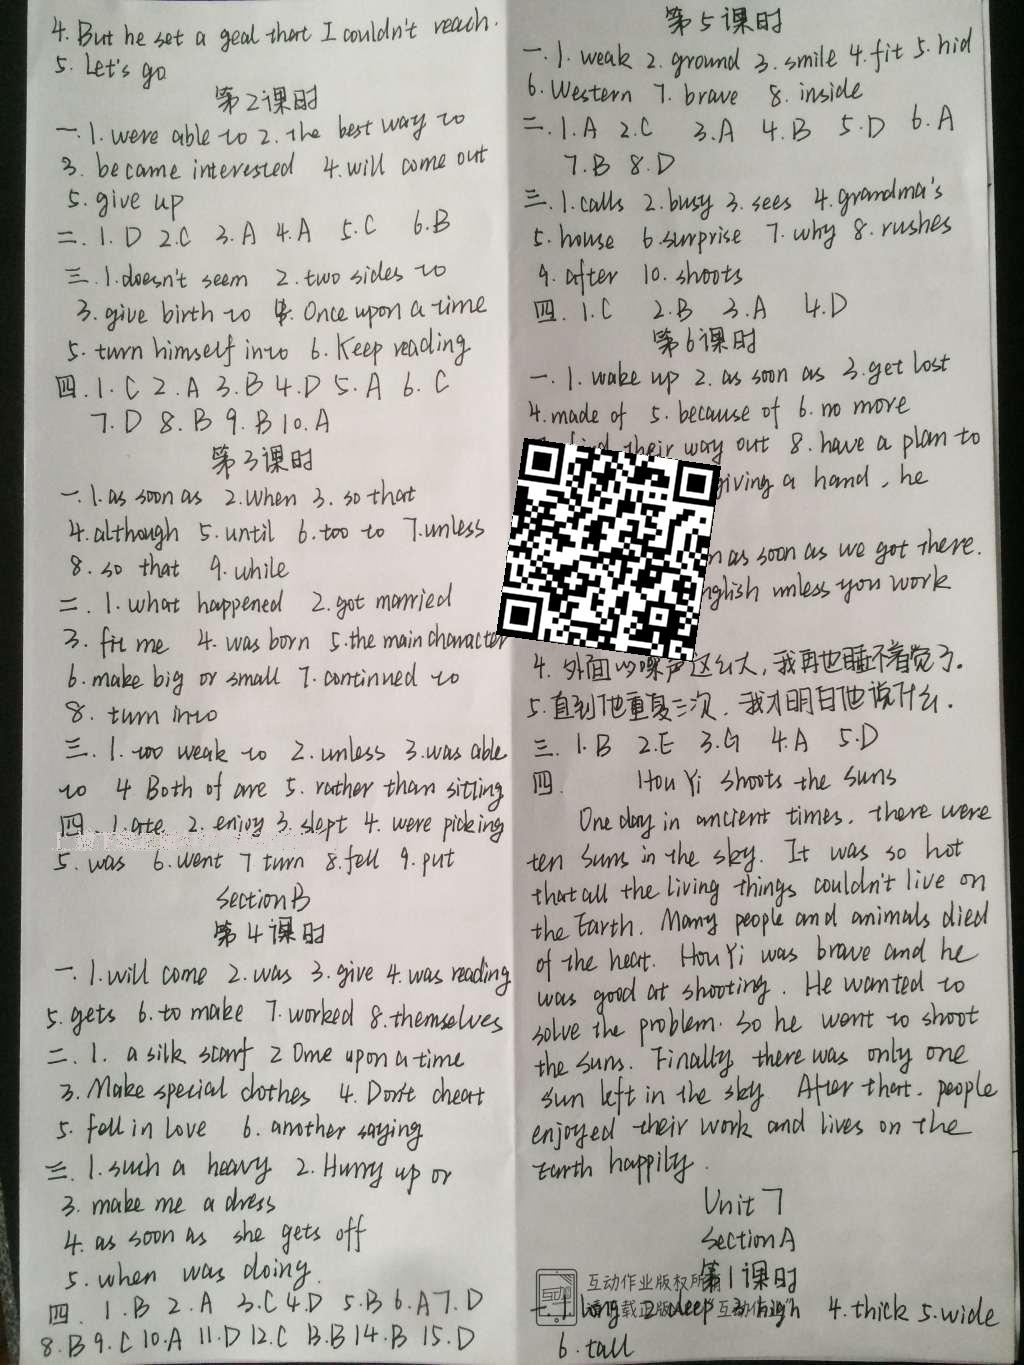 4. But he set a goal that I couldn't reach.
5. Let's go
第2课时
一. 1. were able to 2. the best way to
3. became interested 4. will come out
5. give up
二. 1. D 2. C 3. A 4. A 5. C 6. B
三. 1. doesn't seem 2. two sides to
3. give birth to 4. Once upon a time
5. turn himself into 6. Keep reading
四. 1. C 2. A 3. B 4. D 5. A 6. C
7. D 8. B 9. B 10. A
第3课时
一. 1. as soon as 2. when 3. so that
4. although 5. until 6. too to 7. unless
8. so that 9. while
二. 1. what happened 2. got married
3. fit me 4. was born 5. the main character
6. make big or small 7. continued to
8. turn into
三. 1. too weak to 2. unless 3. was able
to 4 Both of are 5. rather than sitting
四. 1. ate 2. enjoy 3. slept 4. were picking
5. was 6. went 7 turn 8. fell 9. put
Section B
第4课时
一. 1. will come 2. was 3. give 4. was reading
5. gets 6. to make 7. worked 8. themselves
二. 1. a silk scarf 2 Once upon a time
3. Make special clothes 4. Don't cheat
5. fell in love 6. another saying
三. 1. such a heavy 2. Hurry up or
3. make me a dress
4. as soon as she gets off
5. when was doing.
四. 1. B 2. A 3. C 4. D 5. B 6. A 7. D
8. B 9. C 10. A 11. D 12. C 13. B 14. B 15. D
第5课时
一. 1. weak 2. ground 3. smile 4. fit 5. hid
6. Western 7. brave 8. inside
二. 1. A 2. C 3. A 4. B 5. D 6. A
7. B 8. D
三. 1. calls 2. busy 3. sees 4. grandma's
5. house 6. surprise 7. why 8. rushes
9. after 10. shoots
四. 1. C 2. B 3. A 4. D
第6课时
一. 1. wake up 2. as soon as 3. get lost
4. made of 5. because of 6. no more
find their way out 8. have a plan to
giving a hand, he
as soon as we got there.
unless you work
4. 外面的噪声这么大, 我再也睡不着觉了.
5. 直到他重复三次, 我才明白他说什么.
三. 1. B 2. E 3. G 4. A 5. D
四. Hou Yi shoots the suns
One day in ancient times, there were
ten suns in the sky. It was so hot
that all the living things couldn't live on
the Earth. Many people and animals died
of the heat. Hou Yi was brave and he
was good at shooting. He wanted to
solve the problem. So he went to shoot
the suns. Finally there was only one
sun left in the sky After that, people
enjoyed their work and lives on the
Earth happily.
Unit 7
Section A
第1课时
一. 1. long 2. deep 3. high 4. thick 5. wide
6. tall
互动作业版权所有